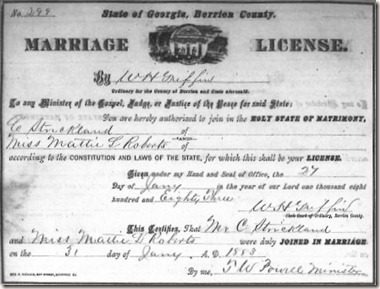 No. 299
State of Georgia, Berrien County.
MARRIAGE LICENSE.
By W H Griffin
Ordinary for the County of Berrien and State aforesaid.
To any Minister of the Gospel, Judge, or Justice of the Peace for said State:
You are hereby authorized to join in the HOLY STATE OF MATRIMONY,
C Strickland of
AND
Miss Mattie L Roberts of
according to the CONSTITUTION AND LAWS OF THE STATE, for which this shall be your LICENSE.
Given under my Hand and Seal of Office, the 27
Day of Jany in the year of our Lord one thousand eight
hundred and Eighty Three
W H Griffin
Clerk Court of Ordinary, Berrien County.
This Certifies, That Mr C Strickland
and Miss Mattie L Roberts were duly JOINED IN MARRIAGE
on the 31 day of Jany A. D. 1883
By me, T W Powell Minister